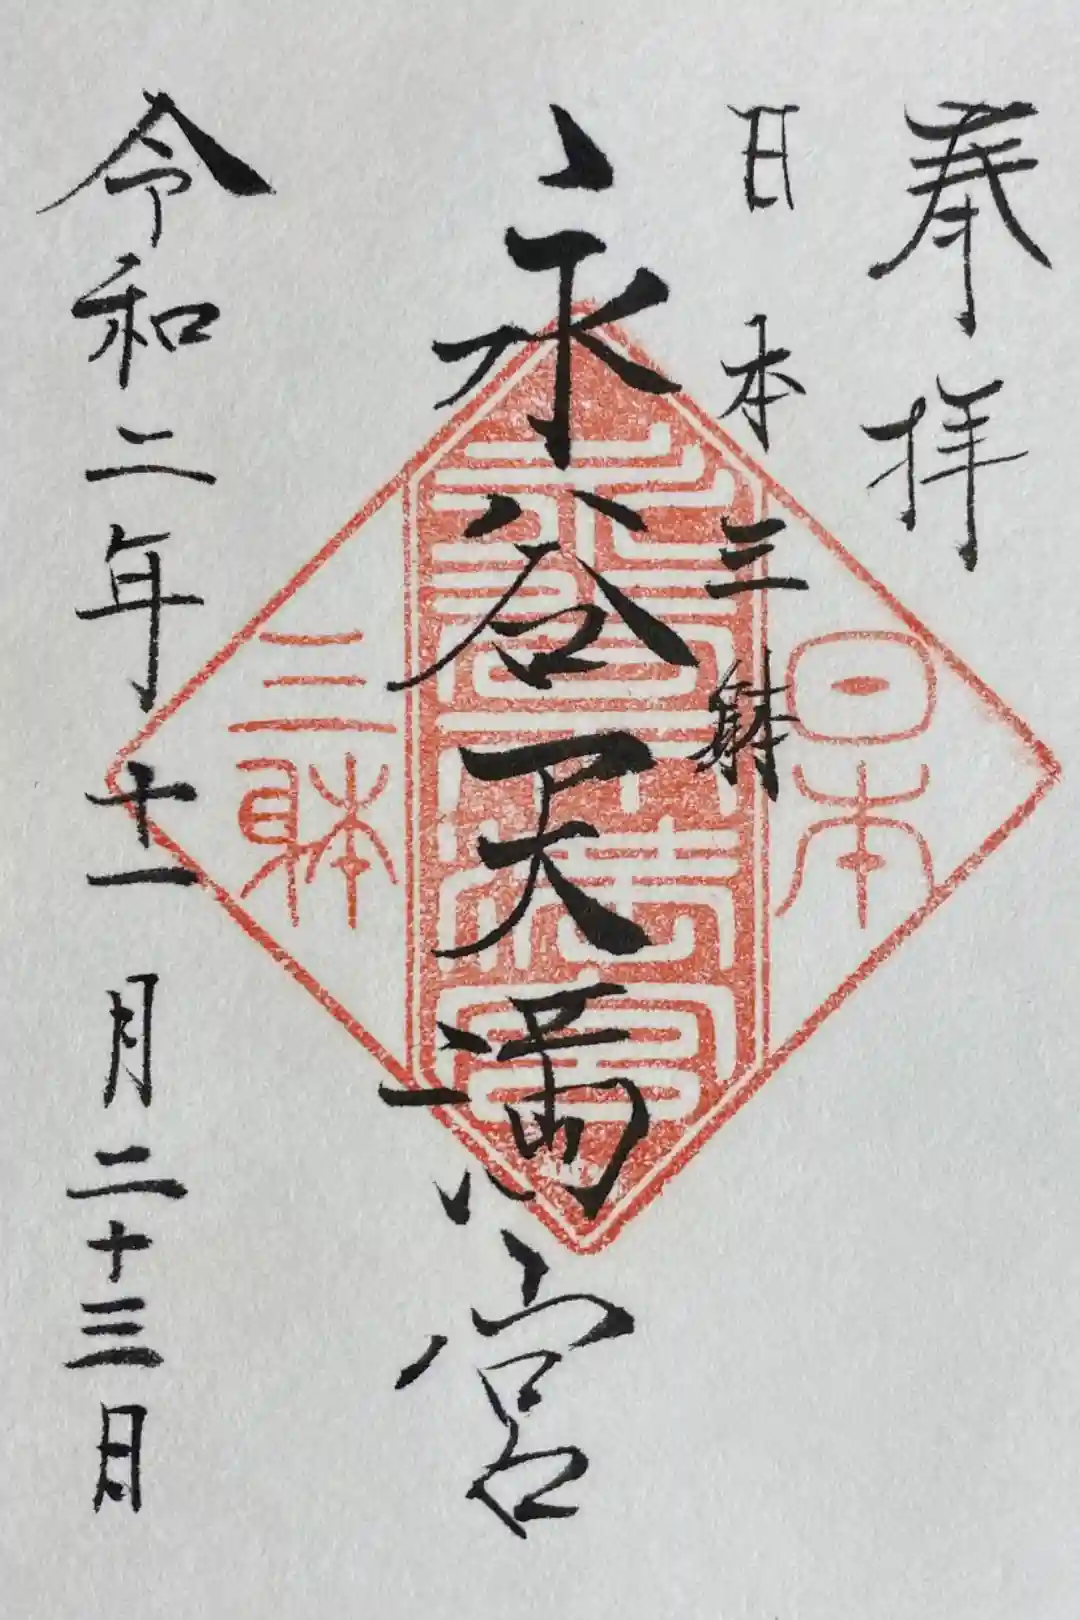 奉拝
日本三躰
永谷天満宮
令和二年十一月二十三日
日本
永谷天満宮
三躰